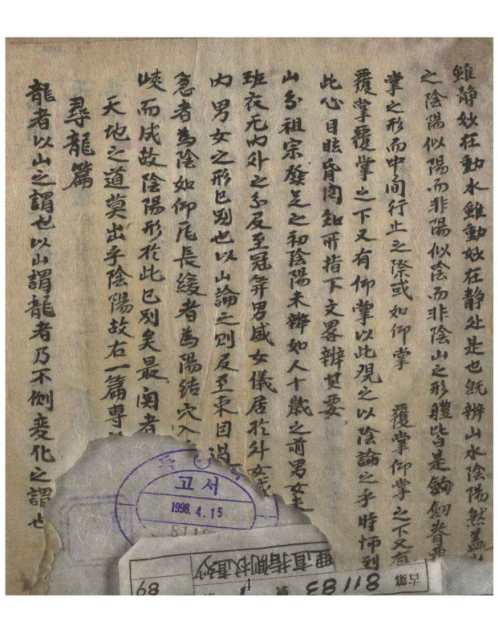 雖静妙在動水雖動妙在静处是也旣辨山水陰陽然盖
之陰陽似陽而非陽似陰而非陰山之形體皆是
掌之形而中間行止之際或如仰掌 覆掌仰掌之下又有
覆掌覆掌之下又有仰掌以此覌之以陰論之乎時
此心目眩昏罔知所指下文畧辨其要
山分祖宗發足之初陰陽未辨如人十歲之前男女
班衣无內外之分及至冠笄男盛女儀居於外女
內男女之形已别也以山論之則及至束
急者為陰如仰瓦長緩者為陽結穴入
峽而成故陰陽形於此已别矣最闊者
天地之道莫出乎陰陽故右一篇専
尋龍篇
龍者以山之謂也以山謂龍者乃不倒変化之謂也
고서
1998. 4. 15
81183
89